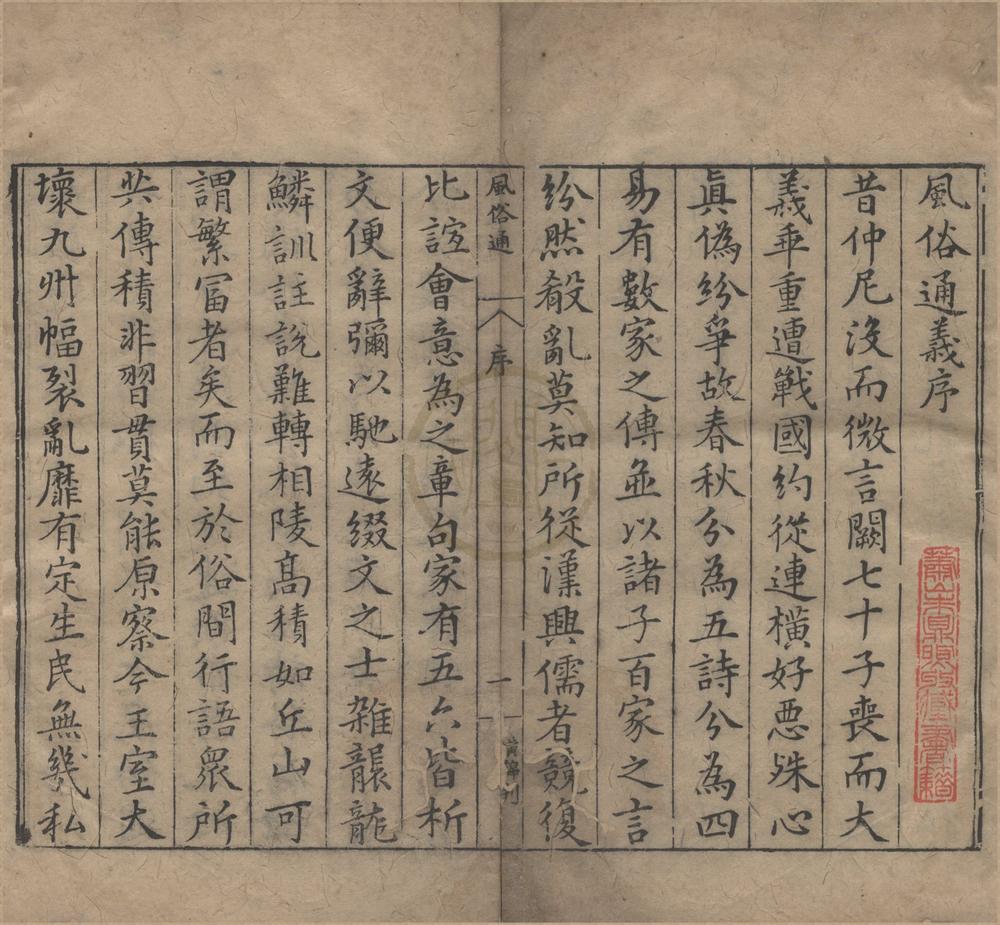 風俗通義序
昔仲尼沒而微言闕七十子喪而大
義乖重遭戰國約從連橫好惡殊心
眞偽紛爭故春秋分為五詩分為四
易有數家之傳並以諸子百家之言
紛然殽亂莫知所從漢興儒者競復
風俗通 序 一
比誼會意為之章句家有五六皆析
文便辭彌以馳遠綴文之士雜襲龍
鱗訓註說難轉相陵高積如丘山可
謂繁冨者矣而至於俗間行語眾所
共傳積非習貫莫能原察今王室大
壞九州幅裂亂靡有定生民無幾私